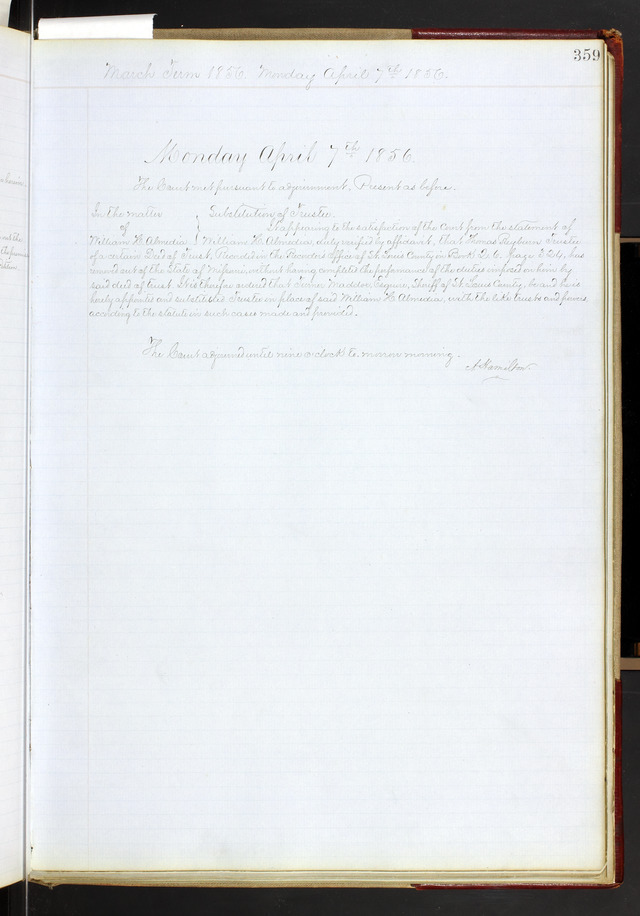 359
March Term 1856. Monday April 7th 1856.
Monday April 7th 1856
The Court met pursuant to adjournment. Present as before.
In the matter } Substitution of Trustee.
of } It appearing to the satisfaction of the Court from the statement of
William H. Almedia } William H. Almedia, duly verified by affidavit, that Thomas Rayburn Trustee
of a certain Deed of Trust, Recorded in the Recorders Office of St. Louis County in Book page has
moved out of the State of Missouri, without having completed the performance of the duties imposed on him by
said deed of trust. It is therefore ordered that Maddox, Esquire, Sheriff of St. Louis County, be and he is
hereby appointed and substituted Trustee in place of said William H. Almedia, with the like trusts and powers,
according to the statute in such cases made and provided.
The Court adjourned until nine o'clock to-morrow morning.
A Hamilton